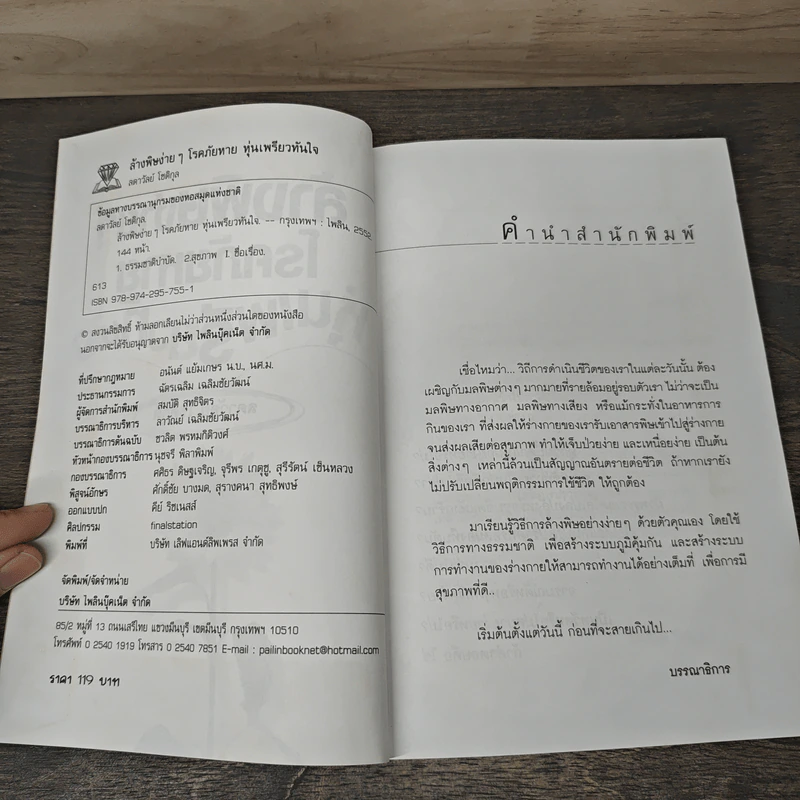 ล้างพิษง่าย ๆ โรคภัยหาย หุ่นเพรียวทันใจ
ลดาวัลย์ โชติกุล
ข้อมูลทางบรรณานุกรมของหอสมุดแห่งชาติ
ลดาวัลย์ โชติกุล.
ล้างพิษง่าย ๆ โรคภัยหาย หุ่นเพรียวทันใจ. -- กรุงเทพฯ : ไพลิน, 2552.
144 หน้า.
1. ธรรมชาติบำบัด. 2.สุขภาพ I. ชื่อเรื่อง.
613
ISBN 978-974-295-755-1
© สงวนลิขสิทธิ์ ห้ามลอกเลียนไม่ว่าส่วนหนึ่งส่วนใดของหนังสือ
นอกจากจะได้รับอนุญาตจาก บริษัท ไพลินบุ๊คเน็ต จำกัด
ที่ปรึกษากฎหมาย อนันต์ แย้มเกษร น.บ., นศ.ม.
ประธานกรรมการ ฉัตรเฉลิม เฉลิมชัยวัฒน์
ผู้จัดการสำนักพิมพ์ สมบัติ สุทธิจิตร
บรรณาธิการบริหาร ลาวัณย์ เฉลิมชัยวัฒน์
บรรณาธิการต้นฉบับ ชวลิต พรหมกิติวงศ์
หัวหน้ากองบรรณาธิการ นุชจรี พิลาพิมพ์
กองบรรณาธิการ ศศิธร ดิษฐเจริญ, จุรีพร เกตุชู, สุรีรัตน์ เซ็นหลวง
พิสูจน์อักษร ศักดิ์ชัย บางมด, สุรางคนา สุทธิพงษ์
ออกแบบปก คีย์ รีซเนสส์
ศิลปกรรม finalstation
พิมพ์ที่ บริษัท เลิฟแอนด์ลิพเพรส จำกัด
จัดพิมพ์/จัดจำหน่าย
บริษัท ไพลินบุ๊คเน็ต จำกัด
85/2 หมู่ที่ 13 ถนนเสรีไทย แขวงมีนบุรี เขตมีนบุรี กรุงเทพฯ 10510
โทรศัพท์ 0 2540 1919 โทรสาร 0 2540 7851 E-mail : pailinbooknet@hotmail.com
ราคา 119 บาท
คำนำสำนักพิมพ์
เชื่อไหมว่า... วิถีการดำเนินชีวิตของเราในแต่ละวันนั้น ต้อง
เผชิญกับมลพิษต่างๆ มากมายที่รายล้อมอยู่รอบตัวเรา ไม่ว่าจะเป็น
มลพิษทางอากาศ มลพิษทางเสียง หรือแม้กระทั่งในอาหารการ
กินของเรา ที่ส่งผลให้ร่างกายของเรารับเอาสารพิษเข้าไปสู่ร่างกาย
จนส่งผลเสียต่อสุขภาพ ทำให้เจ็บป่วยง่าย และเหนื่อยง่าย เป็นต้น
สิ่งต่างๆ เหล่านี้ล้วนเป็นสัญญาณอันตรายต่อชีวิต ถ้าหากเรายัง
ไม่ปรับเปลี่ยนพฤติกรรมการใช้ชีวิต ให้ถูกต้อง
มาเรียนรู้วิธีการล้างพิษอย่างง่ายๆ ด้วยตัวคุณเอง โดยใช้
วิธีการทางธรรมชาติ เพื่อสร้างระบบภูมิคุ้มกัน และสร้างระบบ
การทำงานของร่างกายให้สามารถทำงานได้อย่างเต็มที่ เพื่อการมี
สุขภาพที่ดี..
เริ่มต้นตั้งแต่วันนี้ ก่อนที่จะสายเกินไป...
บรรณาธิการ